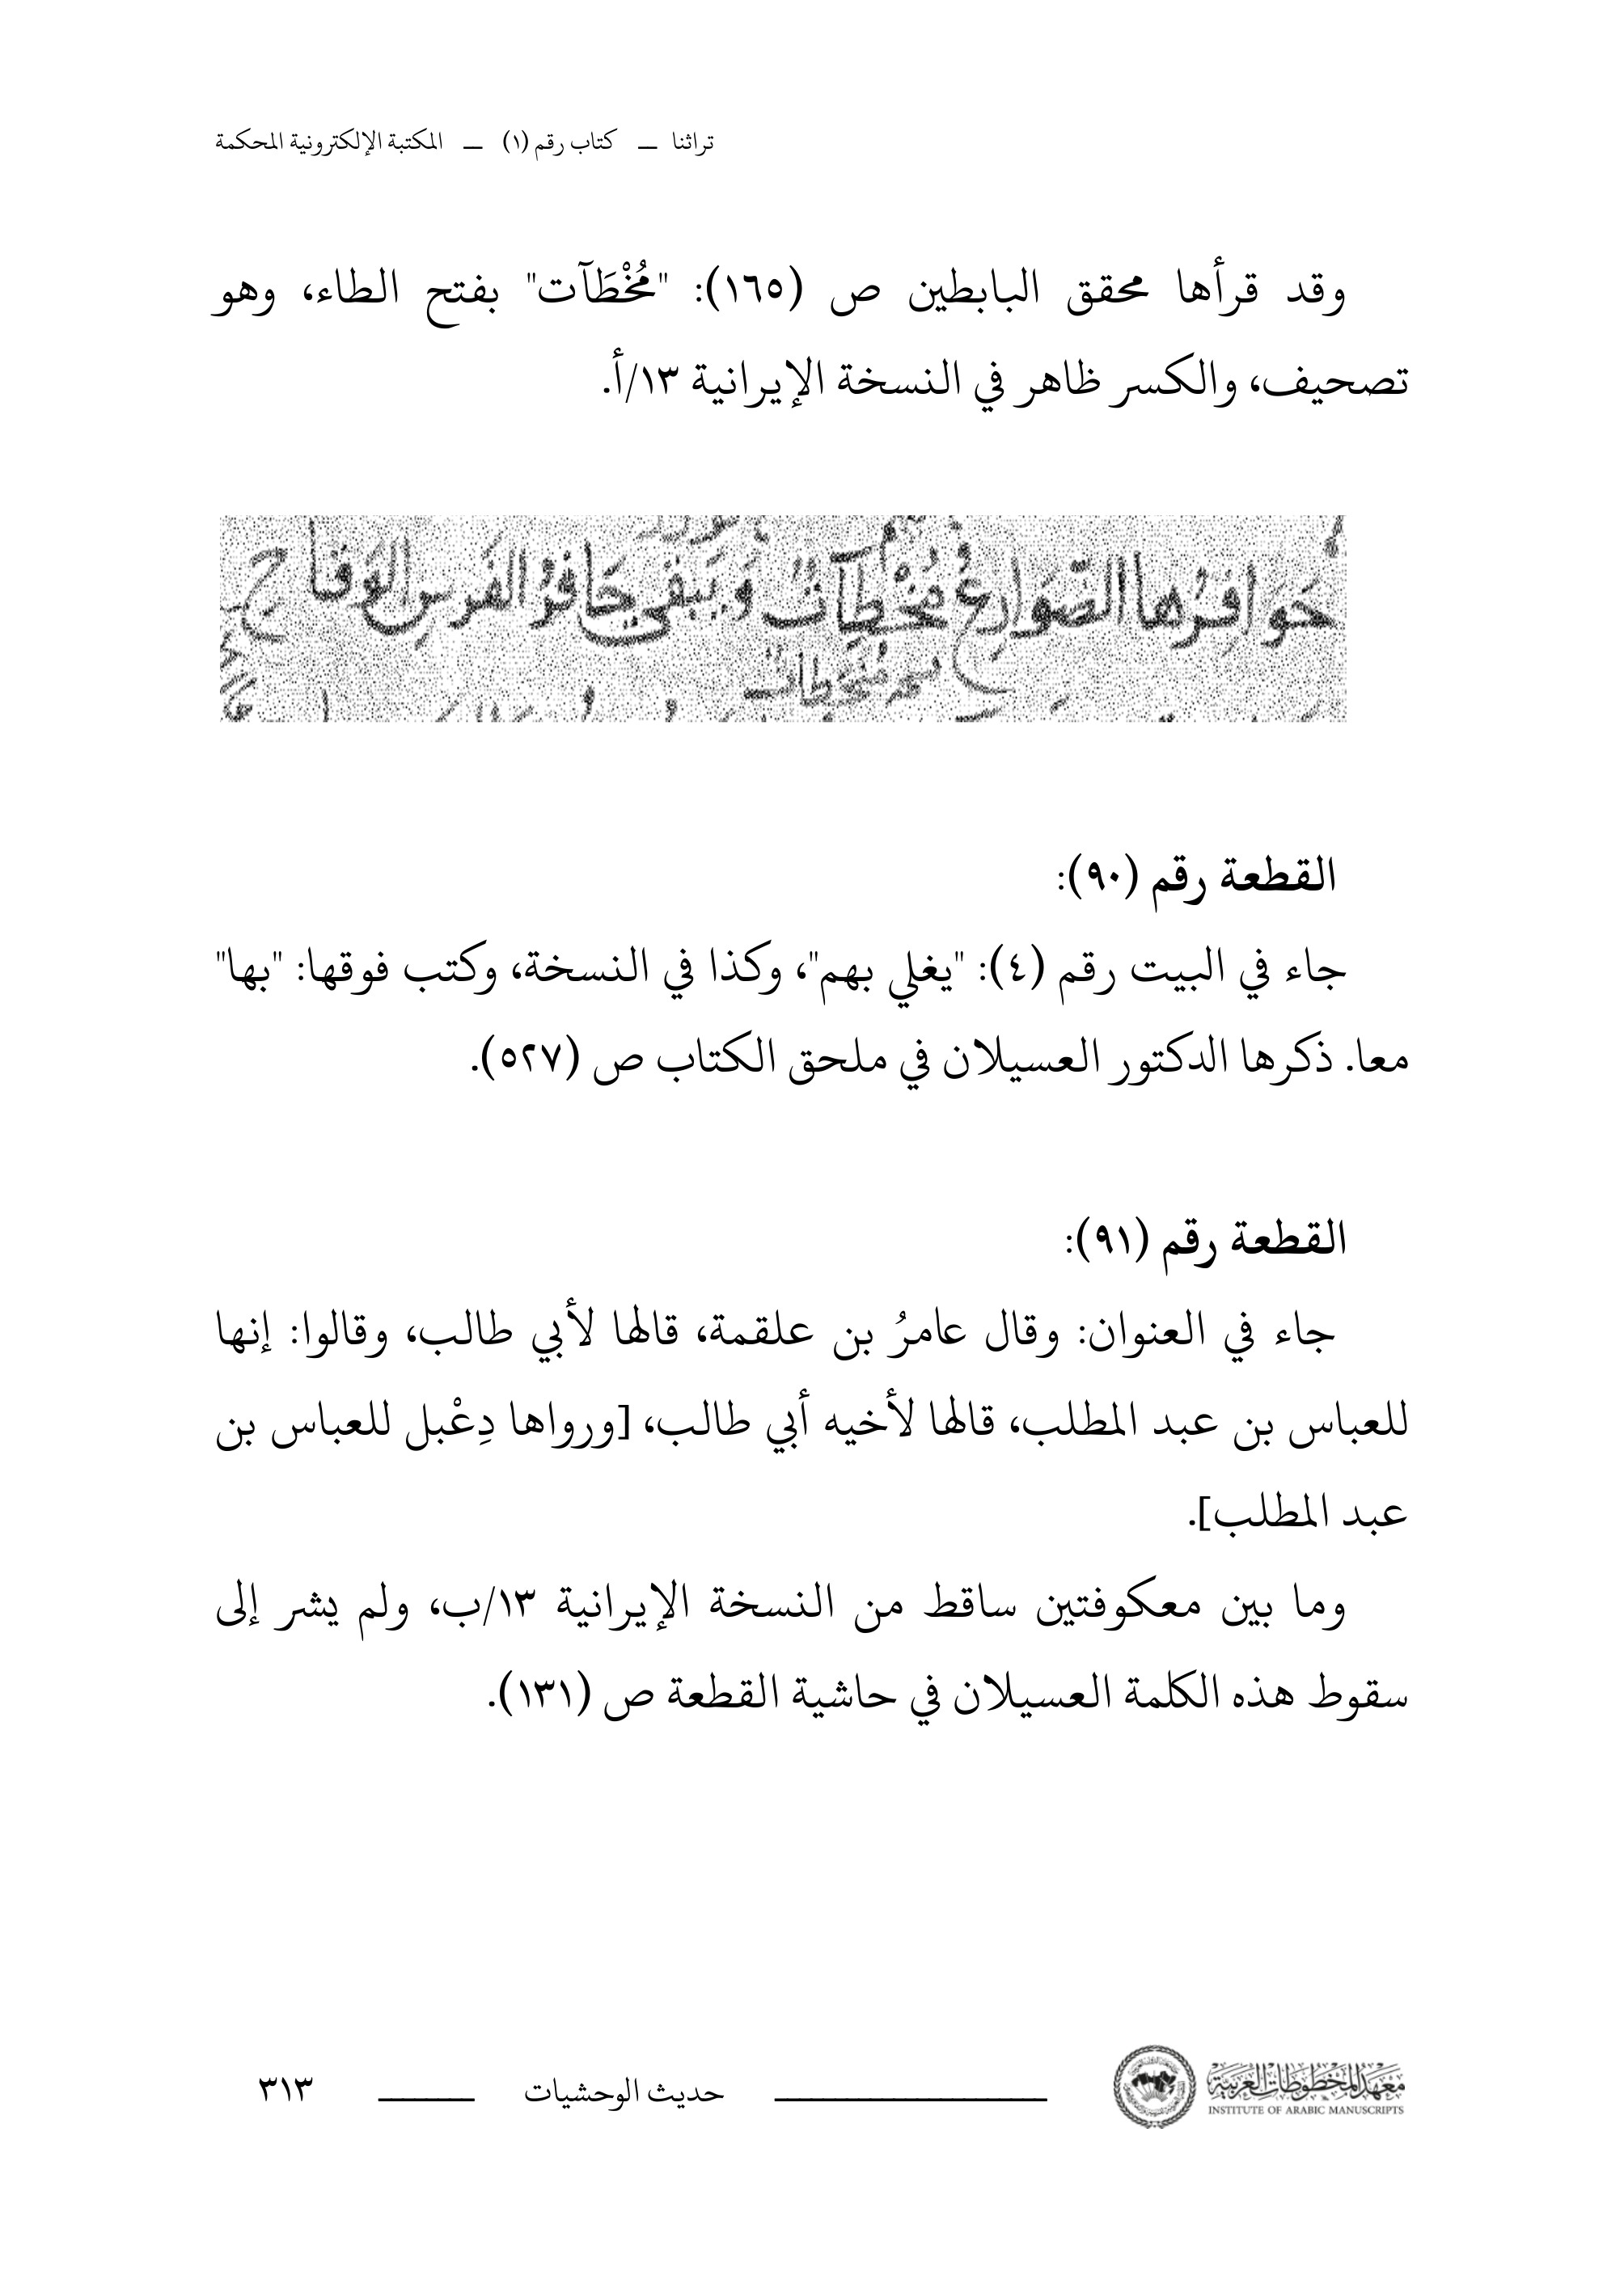 تراثنا ــ كتاب رقم (١) ــ المكتبة الإلكترونية المحكمة
وقد قرأها محقق البابطين ص (١٦٥): "مُخْطَآت" بفتح الطاء، وهو
تصحيف، والكسر ظاهر في النسخة الإيرانية ١٣/أ.
حَوَافِرُها الصَّوَارِعُ مُخْطِآتٌ وَيَبقى حَافرُ الفَرَسِ الوَقَاح
القطعة رقم (٩٠):
جاء في البيت رقم (٤): "يغلي بهم"، وكذا في النسخة، وكتب فوقها: "بها"
معا. ذكرها الدكتور العسيلان في ملحق الكتاب ص (٥٢٧).
القطعة رقم (٩١):
جاء في العنوان: وقال عامرُ بن علقمة، قالها لأبي طالب، وقالوا: إنها
للعباس بن عبد المطلب، قالها لأخيه أبي طالب، [ورواها دِعْبل للعباس بن
عبد المطلب].
وما بين معكوفتين ساقط من النسخة الإيرانية ١٣/ب، ولم يشر إلى
سقوط هذه الكلمة العسيلان في حاشية القطعة ص (١٣١).
معهد المخطوطات العربية
INSTITUTE OF ARABIC MANUSCRIPTS
حديث الوحشيات
٣١٣